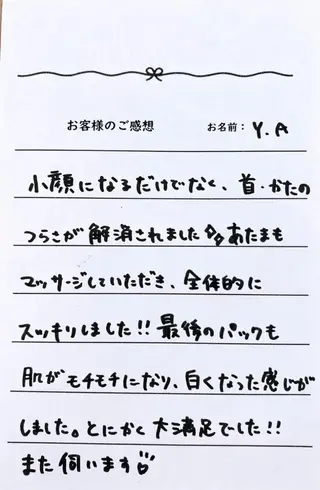 お客様のご感想 お名前： Y.A
小顔になるだけでなく、首・かたの
つらさが解消されました✨あたまも
マッサージしていただき、全体的に
スッキリしました!!最後のパックも
肌がモチモチになり、白くなった感じが
しました。とにかく大満足でした!!
また伺います